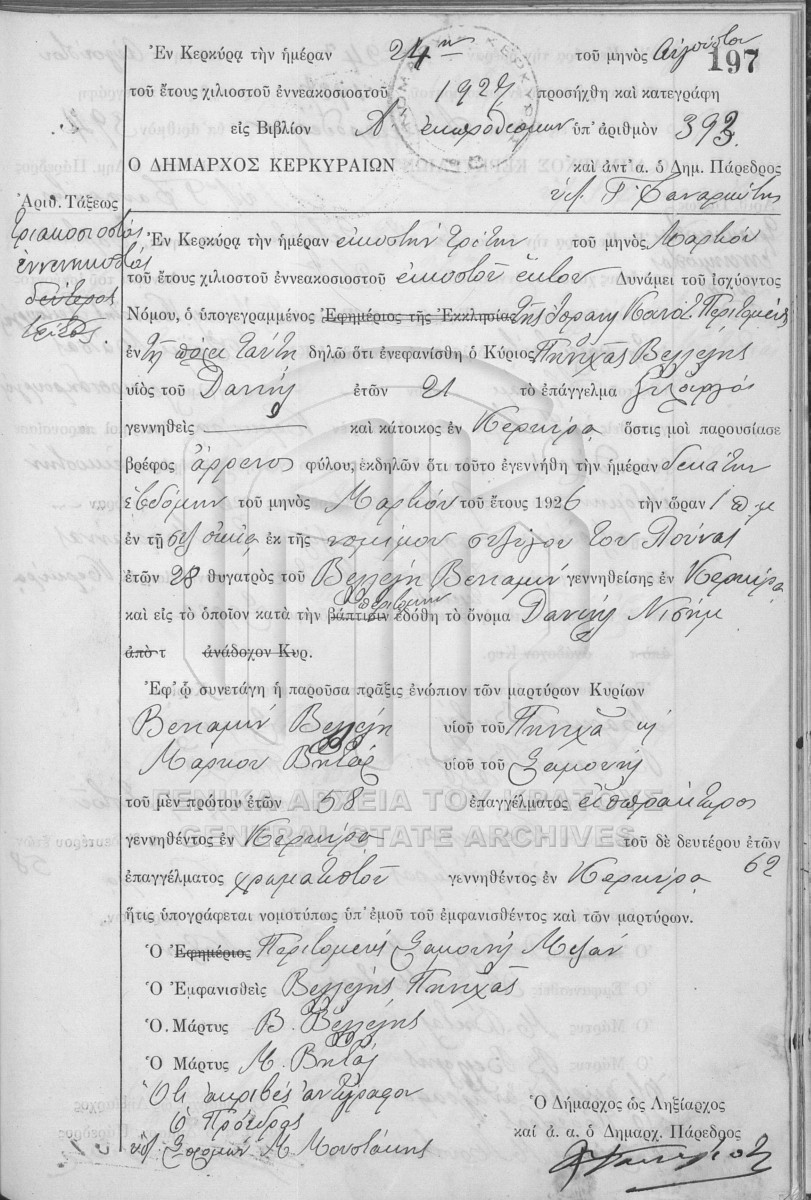 197
Ἐν Κερκύρᾳ τὴν ἡμέραν 24ην τοῦ μηνὸς Αὐγούστου
τοῦ ἔτους χιλιοστοῦ ἐννεακοσιοστοῦ 1927 προσήχθη καὶ κατεγράφη
εἰς Βιβλίον ἐκπροθέσμων ὑπ' ἀριθμὸν 393
Ο ΔΗΜΑΡΧΟΣ ΚΕΡΚΥΡΑΙΩΝ καὶ ἀντ' α. ὁ Δημ. Πάρεδρος
Ἀριθ. Τάξεως
τριακοσιοστὸς
ἐννενηκοστὸς
δεύτερος
τρίτος.
Ἐν Κερκύρᾳ τὴν ἡμέραν εἰκοστὴν τρίτην τοῦ μηνὸς Μαρτίου
τοῦ ἔτους χιλιοστοῦ ἐννεακοσιοστοῦ εἰκοστοῦ ἕκτου Δυνάμει τοῦ ἰσχύοντος
Νόμου, ὁ ὑπογεγραμμένος Ἐφημέριος τῆς Ἐκκλησίας τῆς Ἰσραηλ Κοινοτ. Περιτομεὺς
ἐν τῇ πόλει ταύτῃ δηλῶ ὅτι ἐνεφανίσθη ὁ Κύριος Πινχὰς Βελλέλης
υἱὸς τοῦ Δανιὴλ ἐτῶν 21 τὸ ἐπάγγελμα
γεννηθεὶς καὶ κάτοικος ἐν Κερκύρᾳ ὅστις μοὶ παρουσίασε
βρέφος ἄρρενος φύλου, ἐκδηλῶν ὅτι τοῦτο ἐγεννήθη τὴν ἡμέραν δεκάτην
ἑβδόμην τοῦ μηνὸς Μαρτίου τοῦ ἔτους 1926 τὴν ὥραν 1 π μ
ἐν τῇ οἰκίᾳ ἐκ τῆς νομίμου συζύγου του Λούνας
ἐτῶν 28 θυγατρὸς τοῦ Βελλέλη Βενιαμὶν γεννηθείσης ἐν Κερκύρᾳ
καὶ εἰς τὸ ὁποῖον κατὰ τὴν βάπτισιν περιτομὴν ἐδόθη τὸ ὄνομα Δανιὴλ Νισὴμ
ἀπὸ τ ἀνάδοχον Κυρ.
Ἐφ' ᾧ συνετάγη ἡ παροῦσα πρᾶξις ἐνώπιον τῶν μαρτύρων Κυρίων
Βενιαμὶν Βελλέλη υἱοῦ τοῦ Πινχὰ
Μάρκου Βιτὰλ υἱοῦ τοῦ Σαμουὴλ
τοῦ μὲν πρώτου ἐτῶν 58 ἐπαγγέλματος εἰσπράκτορος
γεννηθέντος ἐν Κερκύρᾳ τοῦ δὲ δευτέρου ἐτῶν 62
ἐπαγγέλματος χρωματιστοῦ γεννηθέντος ἐν Κερκύρᾳ
ἥτις ὑπογράφεται νομοτύπως ὑπ' ἐμοῦ τοῦ ἐμφανισθέντος καὶ τῶν μαρτύρων.
Ὁ Ἐφημέριος Περιτομεὺς Σαμουὴλ Μιζὰν
Ὁ Ἐμφανισθεὶς Βελλέλης Πινχὰς
Ὁ. Μάρτυς Β. Βελλέλης
Ὁ Μάρτυς Μ. Βιτὰλ
Ὅτι ἀκριβὲς ἀντίγραφον
Ὁ Πρόεδρος
Μ. Μουστάκης
Ὁ Δήμαρχος ὡς Ληξίαρχος
καὶ ἀ. α. ὁ Δημαρχ. Πάρεδρος
ΓΕΝΙΚΑ ΑΡΧΕΙΑ ΤΟΥ ΚΡΑΤΟΥΣ
GENERAL STATE ARCHIVES